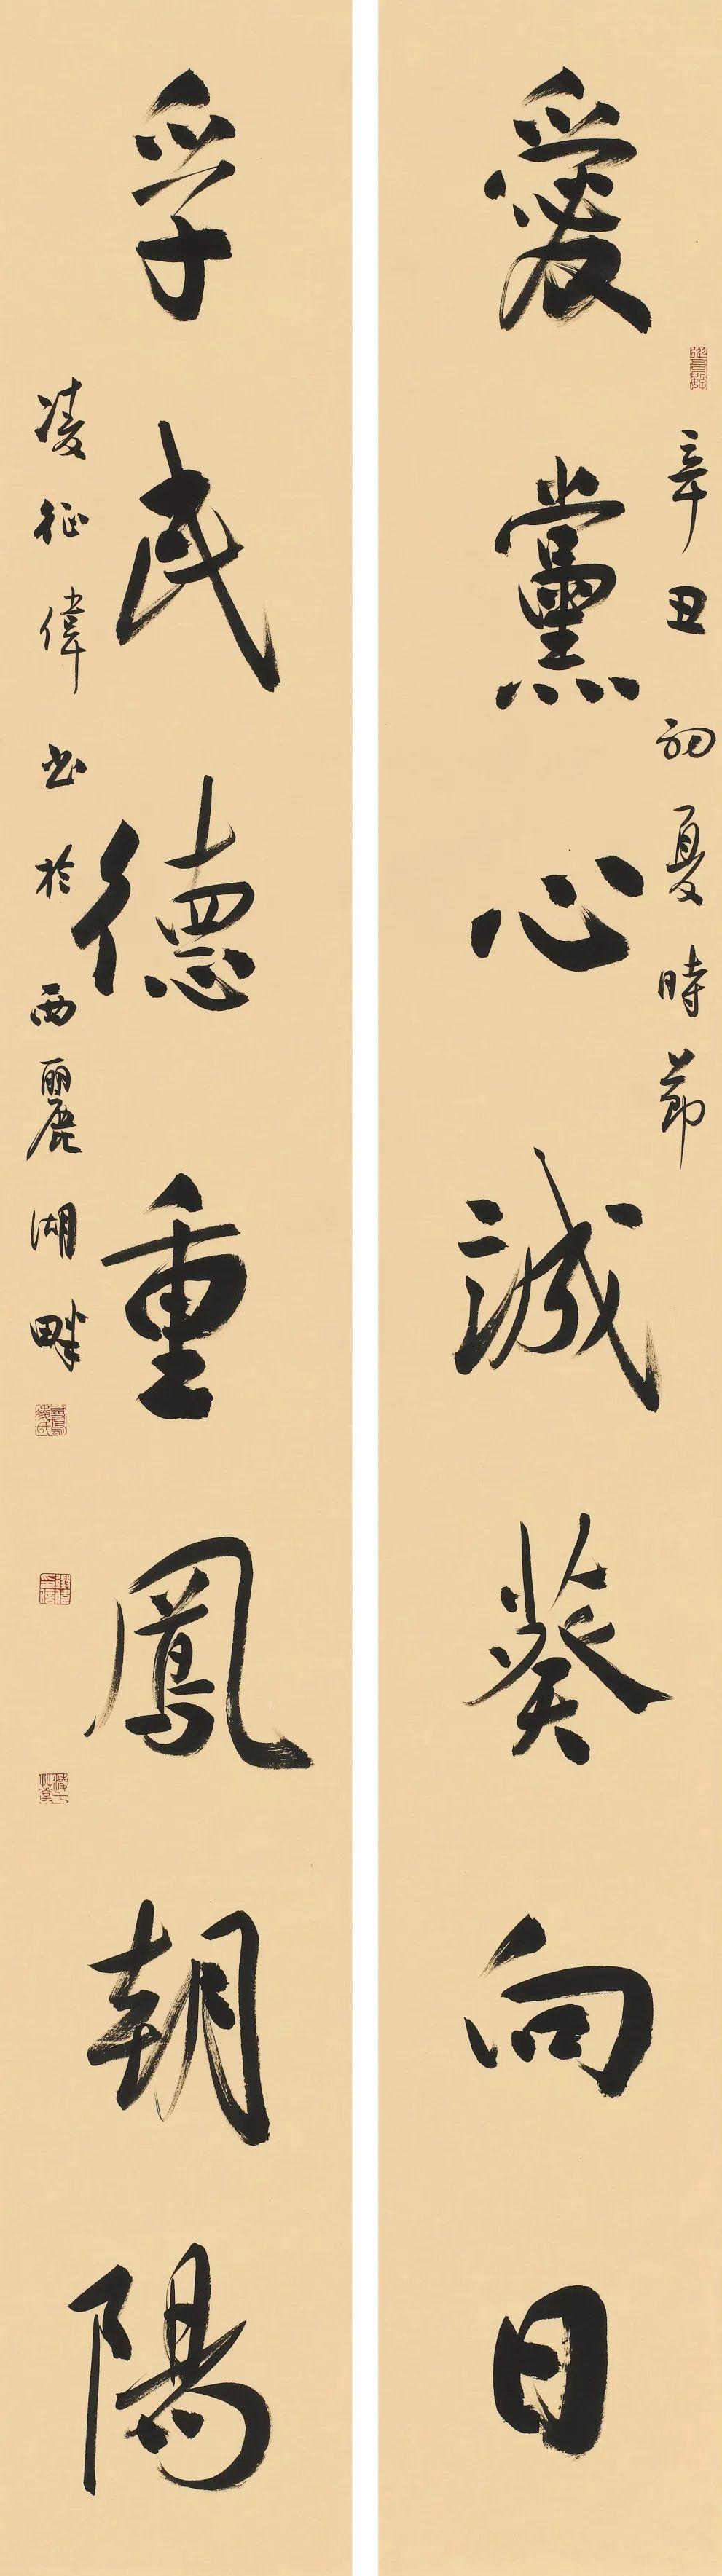 辛丑初夏時節
愛黨心誠葵向日
孚民德重鳳朝陽
凌征偉书於西麗湖畔